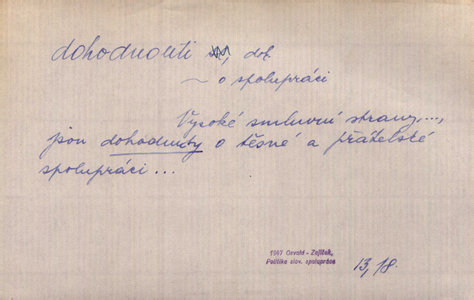 dohodnouti, dok.
~ o spolupráci
Vysoké smluvní strany,...,
jsou dohodnuty o těsné a přátelské
spolupráci...
1947 Osvald - Zajíček,
Politika slov. spolupráce
13, 18.